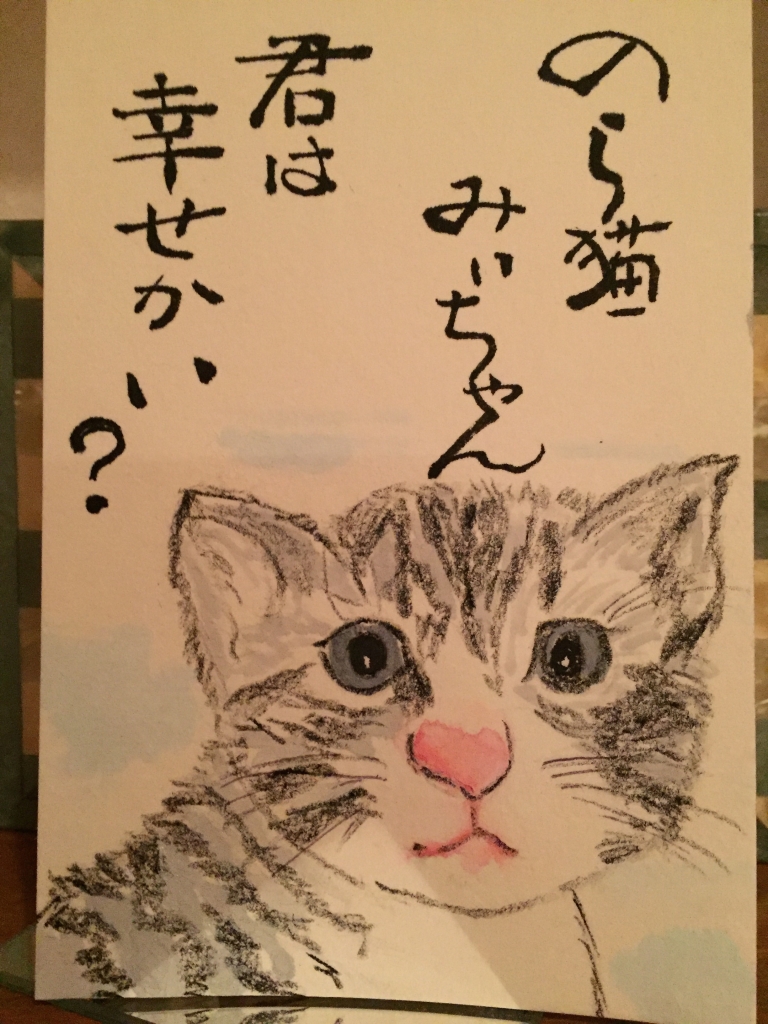 のら猫
みぃちゃん
君は
幸せかい?